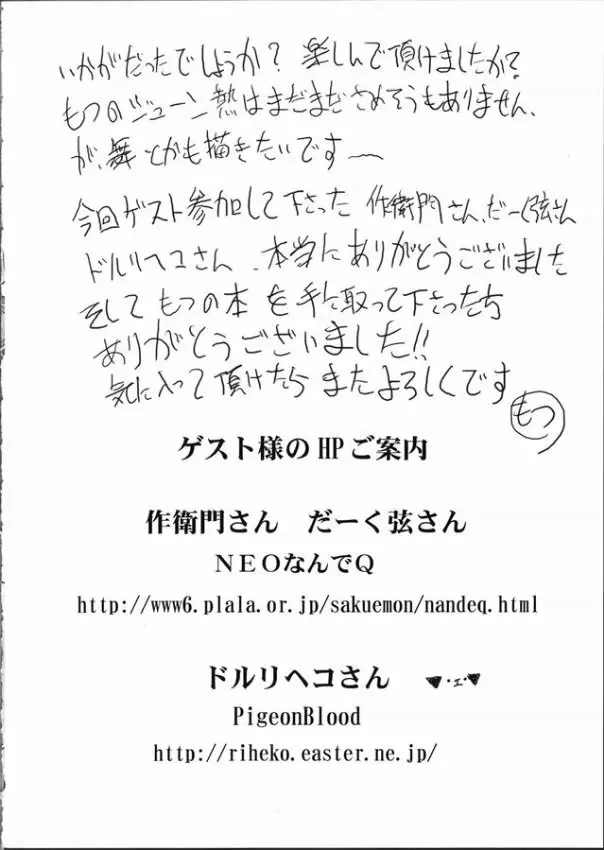 いかがだったでしょうか?楽しんで頂けましたか?
もつのジューン熱はまだまださめそうもありません、
が、舞とかも描きたいです〜
今回ゲスト参加して下さった 作衛門さん、だーく弦さん
ドルリヘコさん、本当にありがとうございました
そして もつの本 を手に取って下さった方
ありがとうございました!!
気に入って頂けたら またよろしくです
もつ
ゲスト様のHPご案内
作衛門さん だーく弦さん
NEOなんでQ
http://www6.plala.or.jp/sakuemon/nandeq.html
ドルリヘコさん ▼・ェ・▼
PigeonBlood
http://riheko.easter.ne.jp/